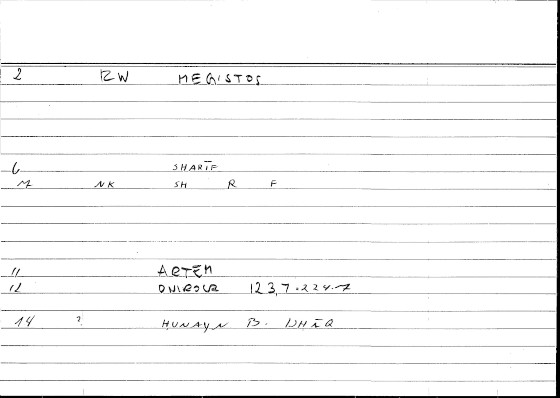 2 RW MEGISTOS
6 SHARĪF
M NK SH R F
11 ARTEM
12 ONIROCR 123,7-224-7
14 ? HUNAYN B. ISHĀQ